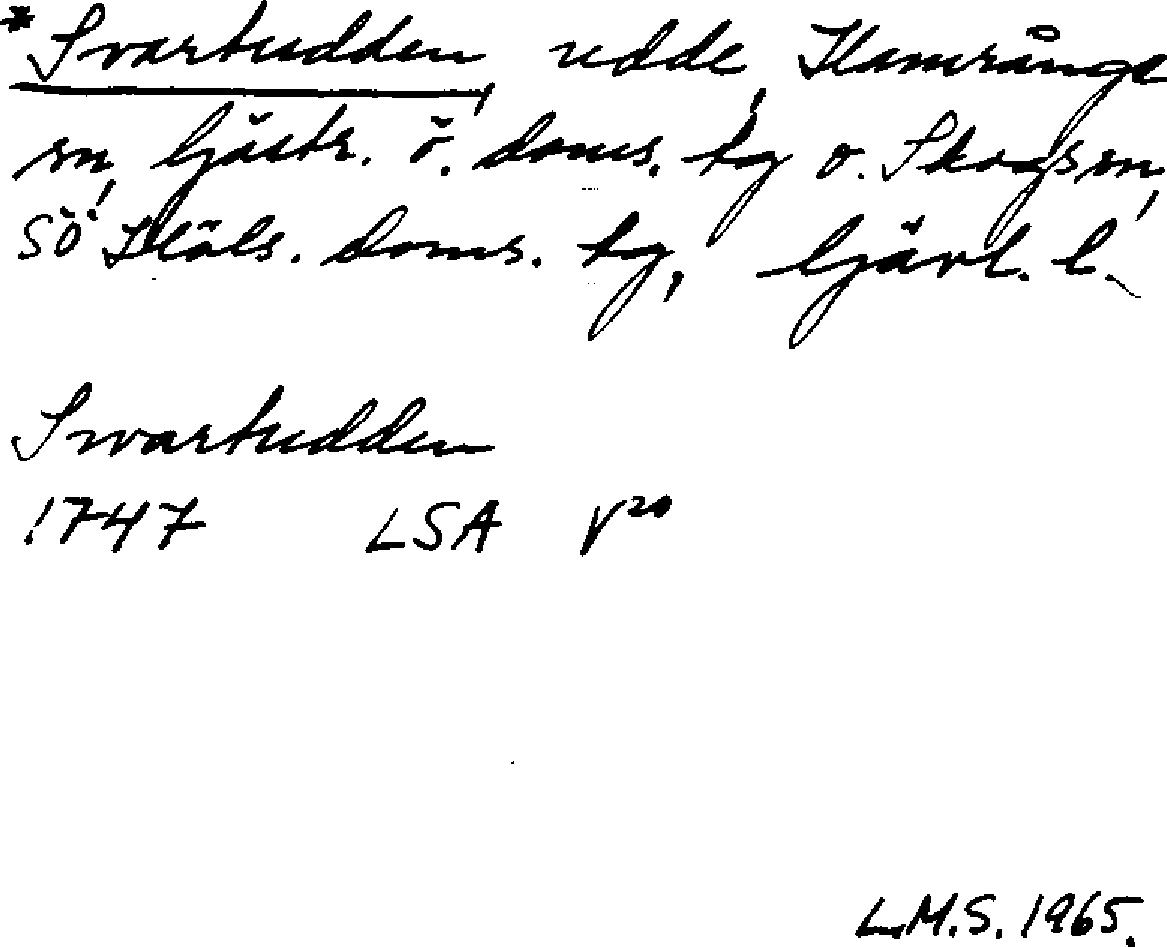 *Svartudden, udde, Hamrånge
sn, Gästr. ö. doms. tg o. Skogs sn,
SÖ Häls. doms. tg, Gävl. l.
Swartudden
1747 LSA V²⁰
L.M.S. 1965.